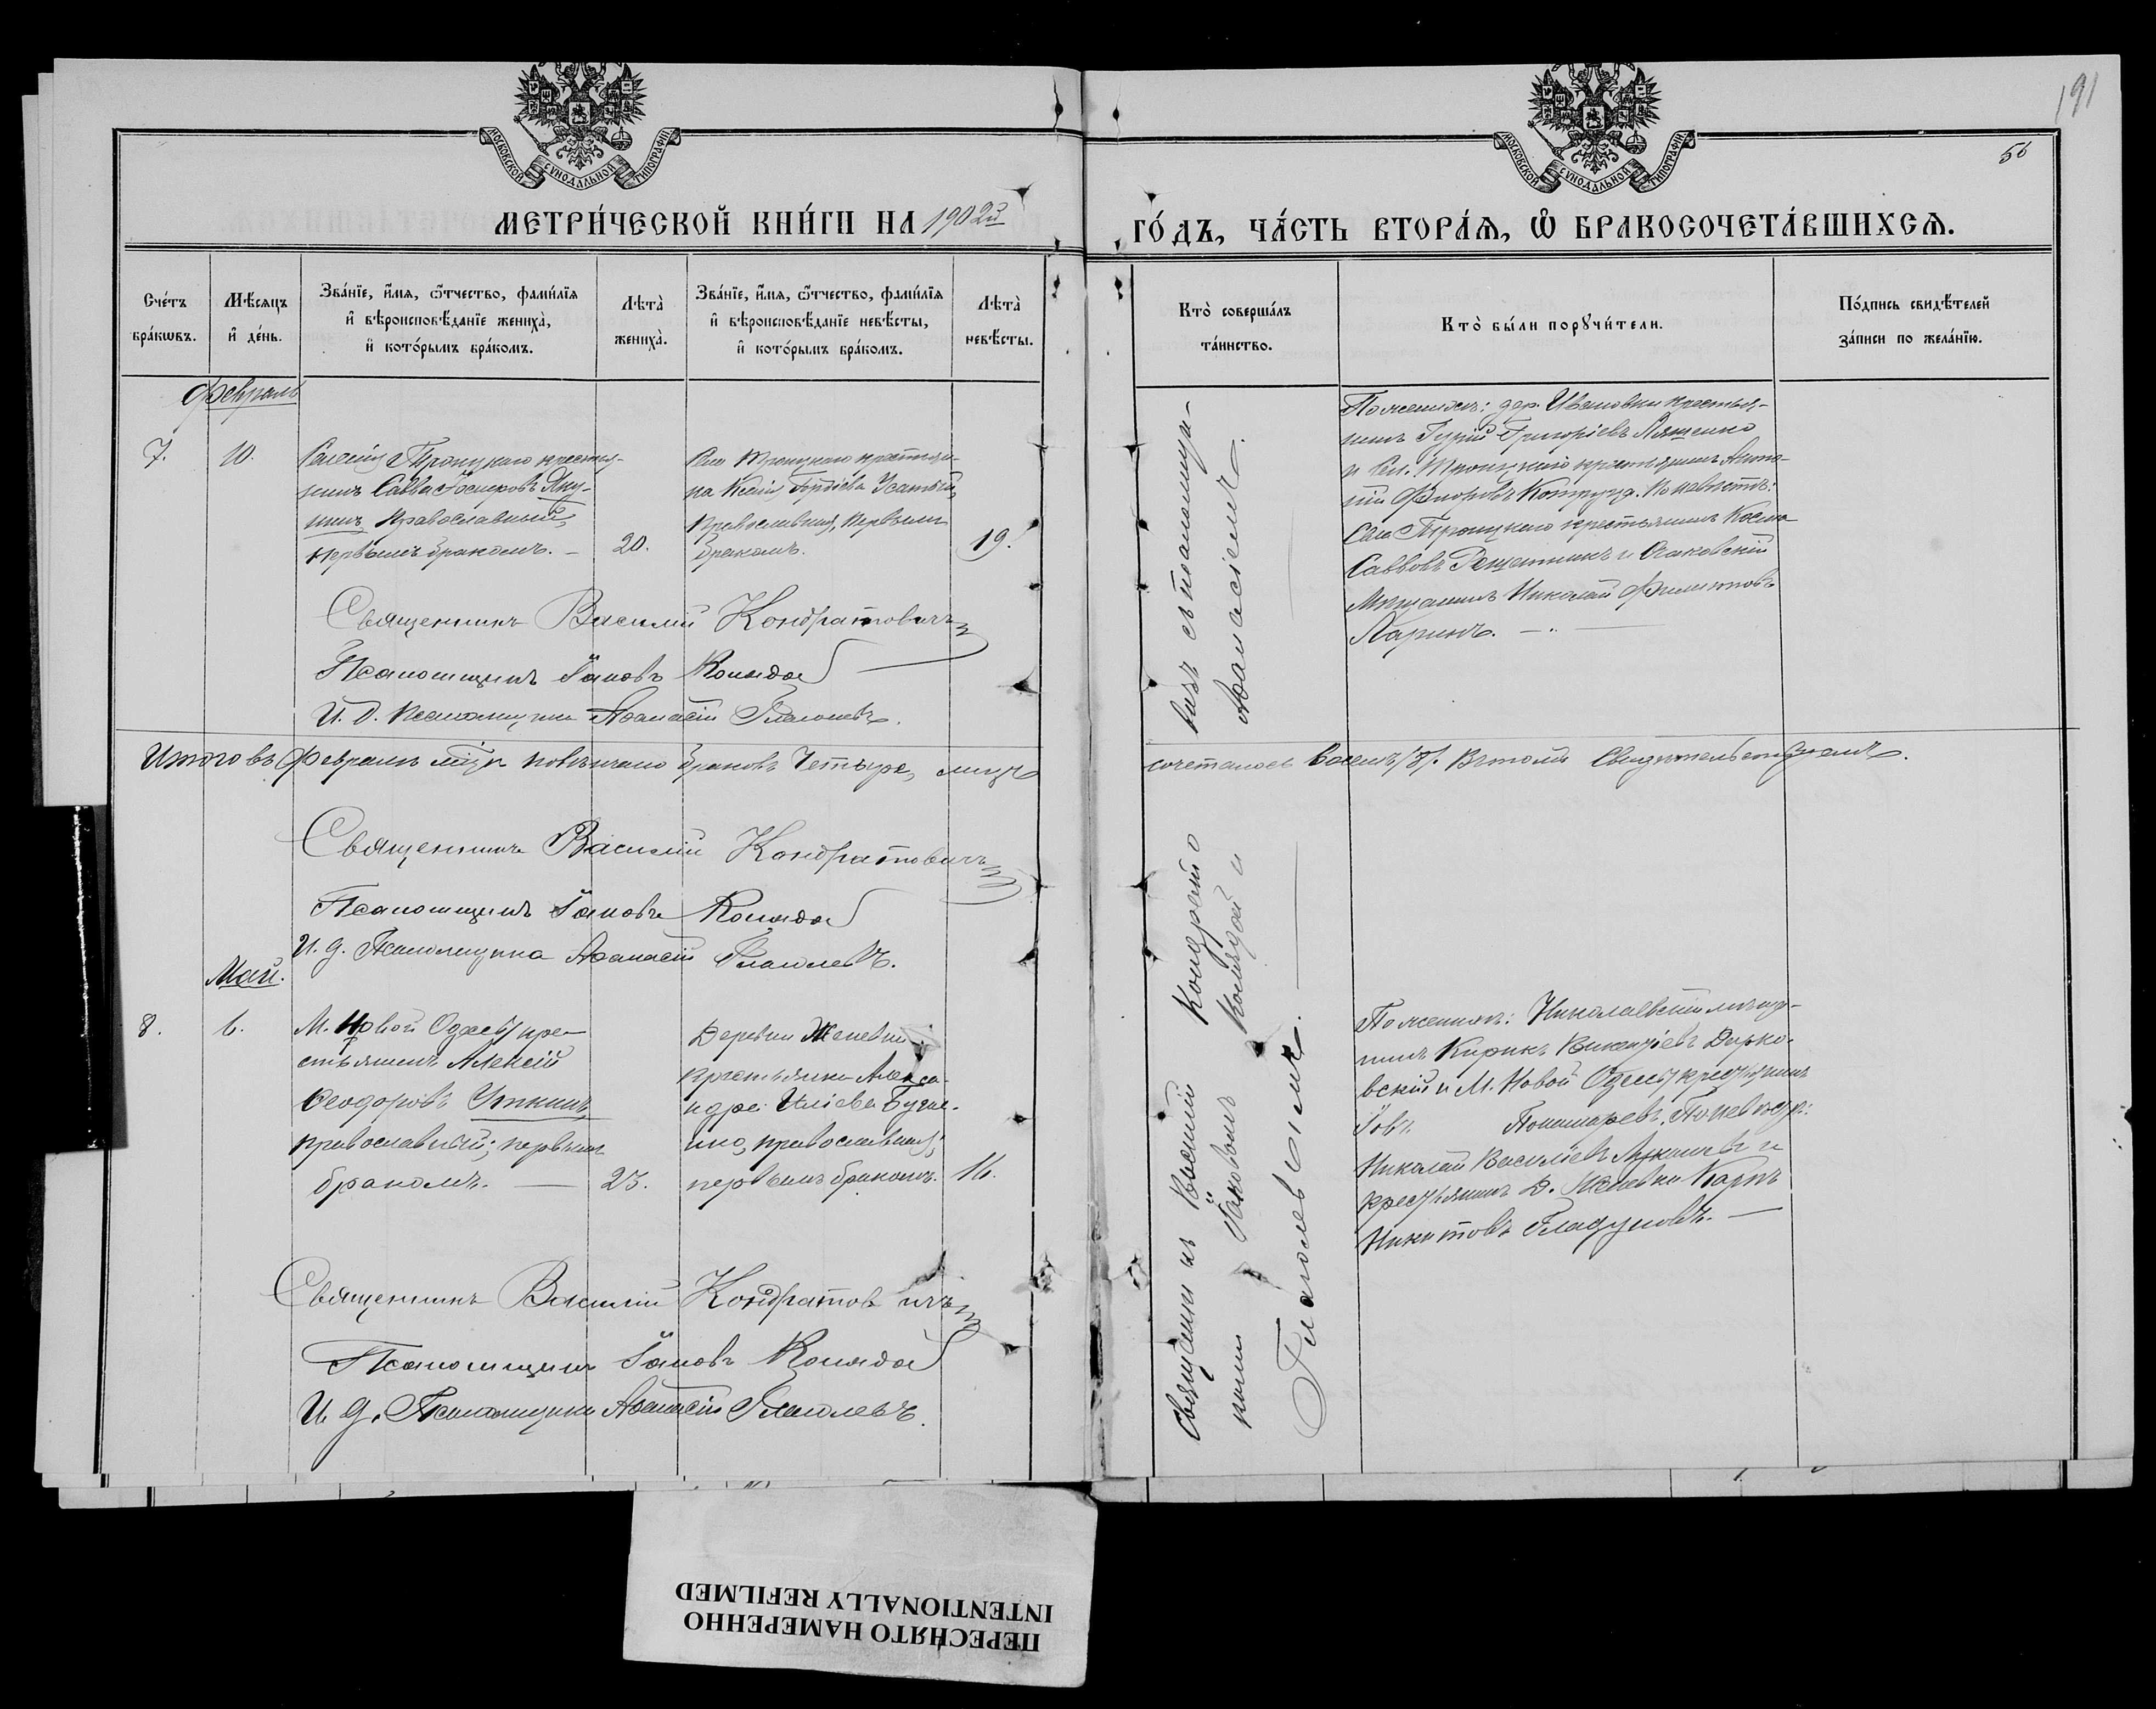 191
56
МОСКОВСКОЙ СѴНОДАЛЬНОЙ ТИПОГРАФІИ
МОСКОВСКОЙ СѴНОДАЛЬНОЙ ТИПОГРАФІИ
МЕТРИ́ЧЕСКОЙ КНИ́ГИ НА 1902й
ГО́ДЪ, ЧА́СТЬ ВТОРА́Я, Ѽ БРАКОСОЧЕТА́ВШИХСЯ.
Сче́тъ бра́кѡвъ.
Мѣ́сяцъ и҆ де́нь.
Зва́нїе, и҆́мя, ѻ҆́тчество, фами́лїя и҆ вѣроисповѣ́данїе жениха̀, и҆ кото́рымъ бра́комъ.
Лѣта̀ жениха̀.
Зва́нїе, и҆́мя, ѻ҆́тчество, фами́лїя и҆ вѣроисповѣ́данїе невѣ́сты, и҆ кото́рымъ бра́комъ.
Лѣта̀ невѣ́сты.
Кто̀ соверша́лъ та́инство.
Кто̀ бы́ли порꙋчи́тели.
По́дпись свидѣ́телей за́писи по жела́нїю.
Февраль
7.
10.
Троицкаго крестья-
нинъ Савва
православный,
первымъ бракомъ. —
20.
Села Троицкаго крестьян-
ка Усатый,
Православная, первымъ
бракомъ.
19.
По женихѣ: дер. Ивановки крестья-
нинъ Гурій Григоріевъ Лященко
и сел. Троицкаго крестьянинъ Анто-
ній По невѣстѣ:
Села Троицкаго крестьянинъ Косма
Саввовъ и Очаковскій
Мѣщанинъ Николай Филиповъ
Ларинъ. —
Священникъ Василій Кондратовичъ
Псаломщикъ Іаковъ Коляда
И. д. псаломщика Аѳанасій Глаголевъ.
Итого въ Февралѣ м-цѣ повѣнчано браковъ Четыре, лицъ
сочеталось восемь /8/. Въ томъ Свидѣтельствуемъ.
Священникъ Василій Кондратовичъ
Псаломщикъ Іаковъ Коляда
И. д. Псаломщика Аѳанасій Глаголевъ.
Май.
8.
6.
М. Новой Одессы кре-
стьянинъ Алексій
Ѳеодоровъ Уткинъ,
православный; первымъ
бракомъ. —
25.
Деревни Женевки
крестьянка Алекса-
ндра Иліева
православная,
первымъ бракомъ.
16.
Священникъ Василій Кондрато-
вичъ съ псаломщи-
ками Іаковомъ Колядой и
Аѳанасіемъ
Глаголевымъ.
По женихѣ: Николаевскій мѣща-
нинъ Кирикъ Викентіевъ
и М. Новой Одессы крестьянинъ
Іовъ Пономаревъ. По невѣстѣ:
Николай Василіевъ и
крестьянинъ д. Женевки Карпъ
Никитовъ Гладуновъ. —
Священникъ Василій Кондратовичъ
Псаломщикъ Іаковъ Коляда
И. д. Псаломщика Аѳанасій Глаголевъ.
ПЕРЕСНЯТО НАМЕРЕННО
INTENTIONALLY REFILMED